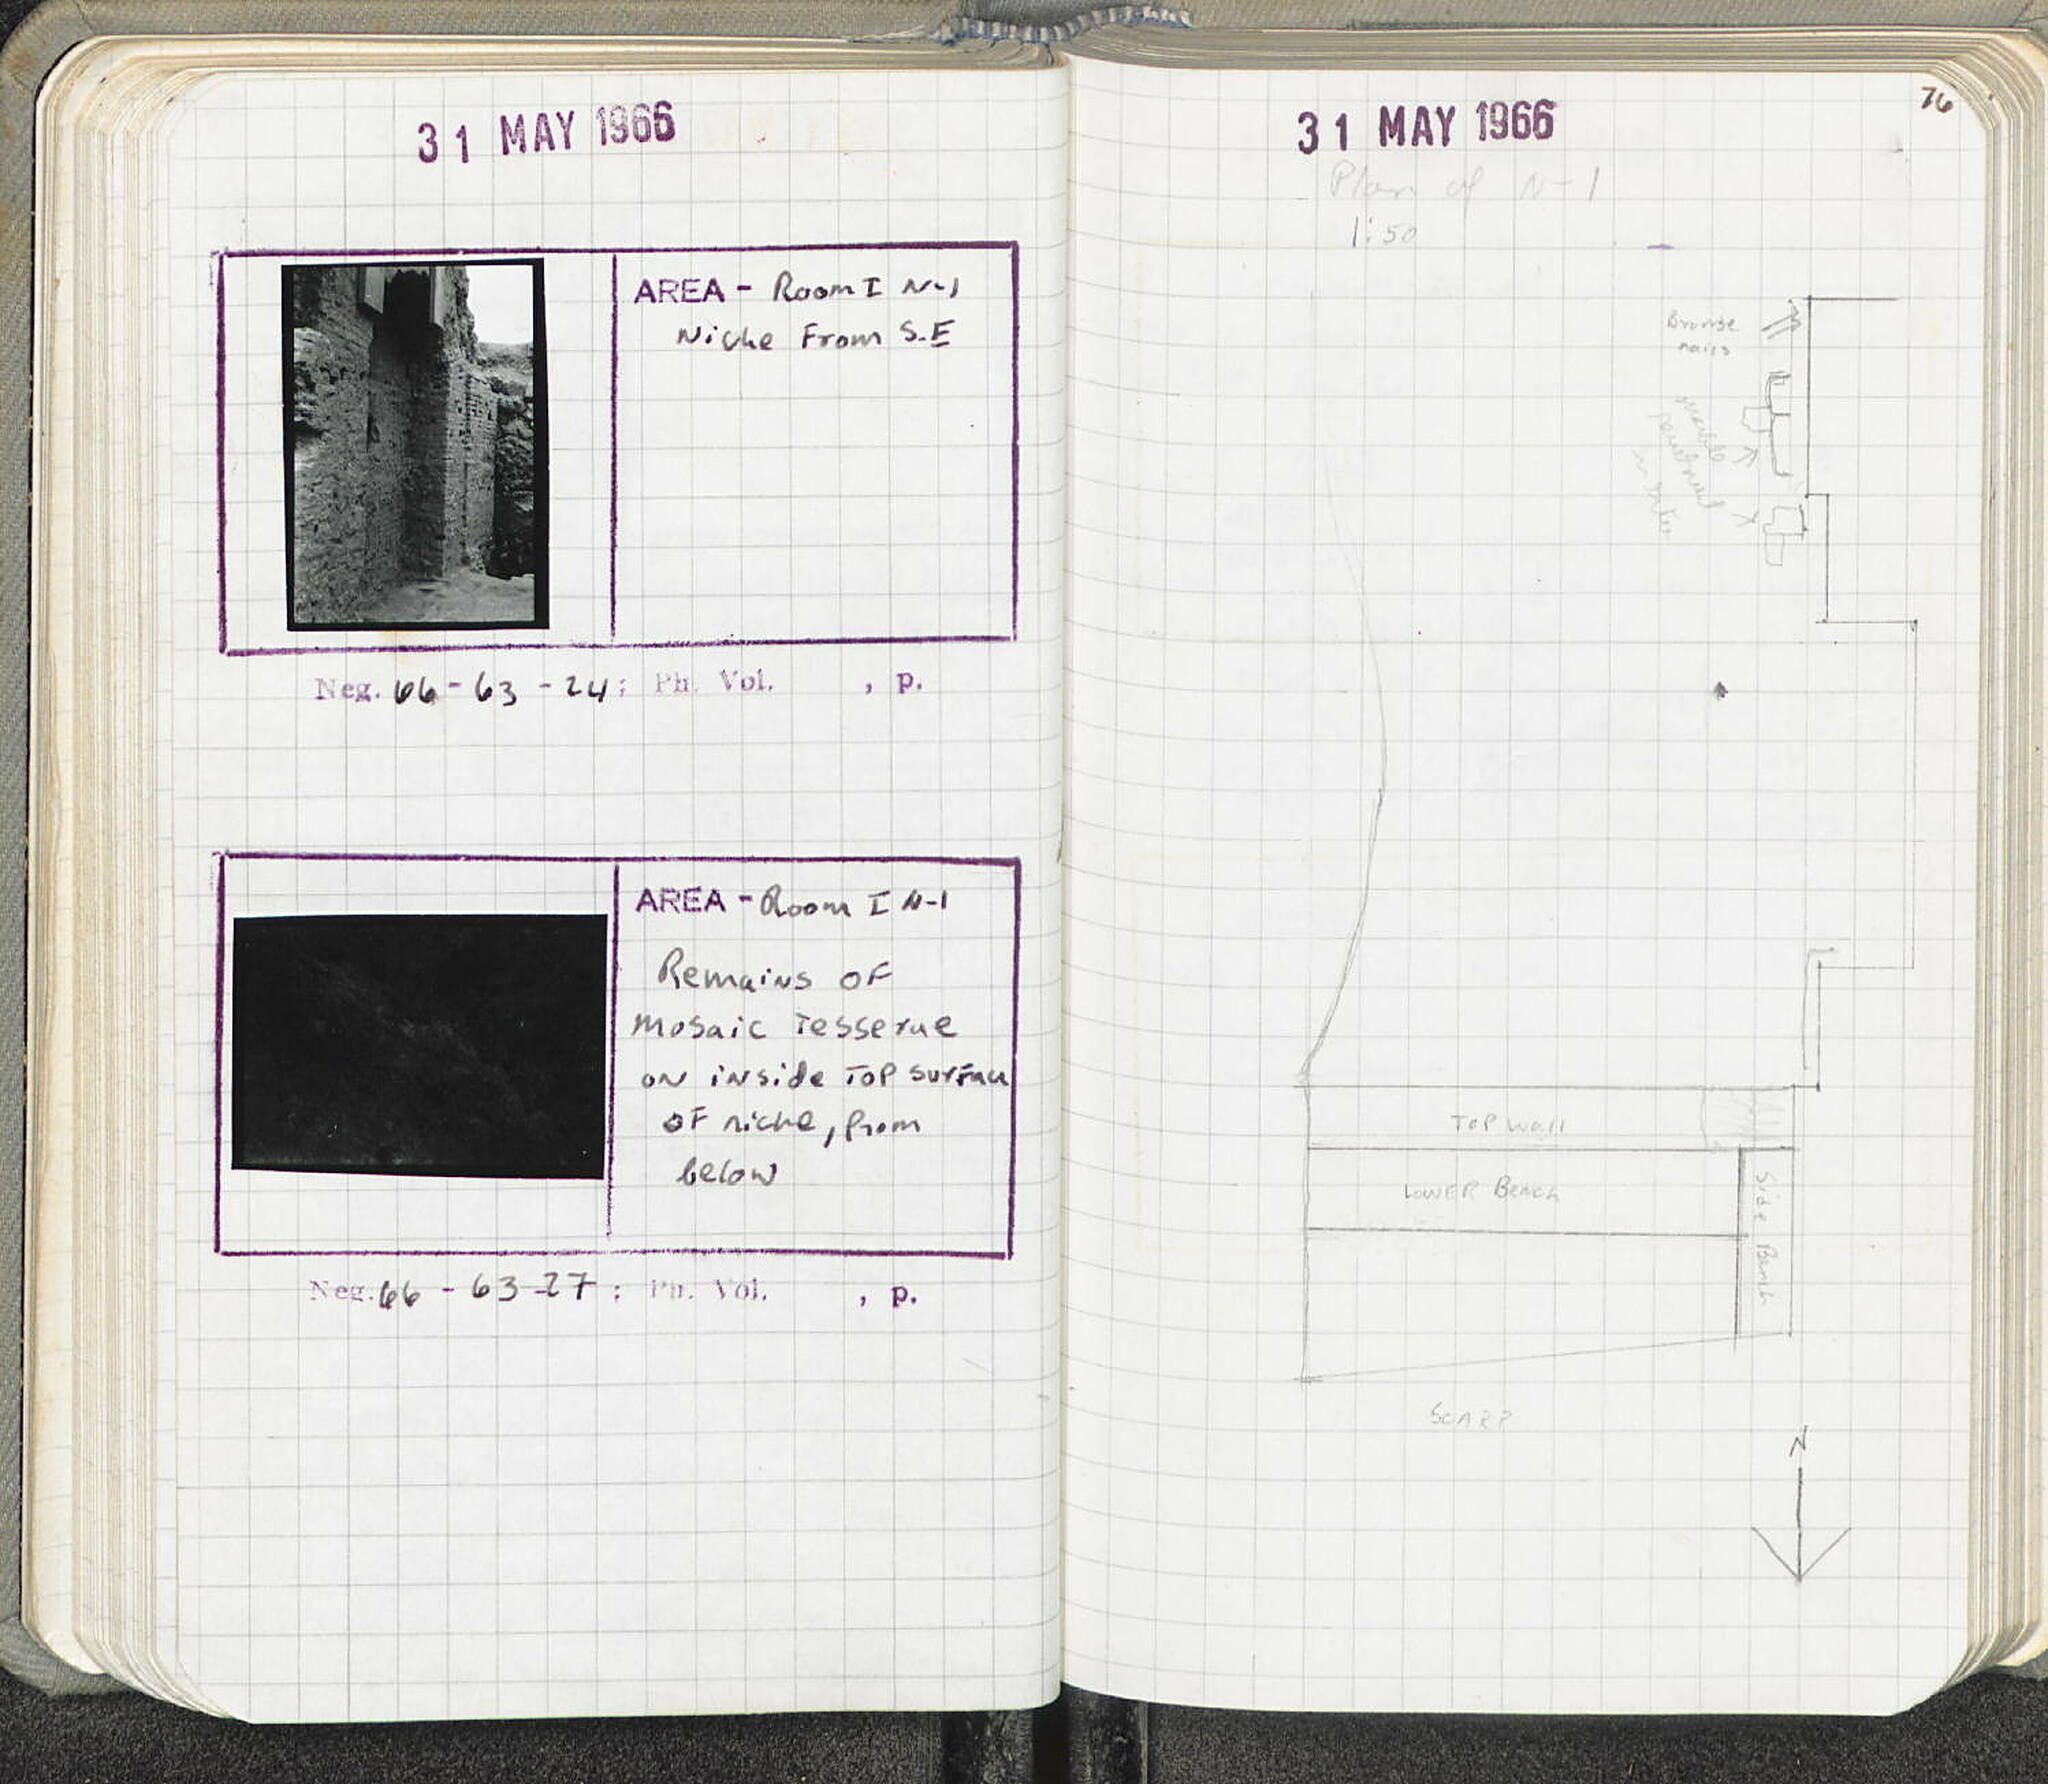 31 MAY 1966
AREA - Room I N-1
Niche From S.E
Neg. 66 - 63 - 24; Ph. Vol. , p.
AREA - Room I N-1
Remains OF
Mosaic Tesserae
ON inside TOP surface
OF niche, from
below
Neg. 66 - 63-27; Ph. Vol. , p.
76
31 MAY 1966
Plan of N-1
1:50
Bronze
nails
marble
TOP wall
LOWER Bench
Side Bench
SCARP
N